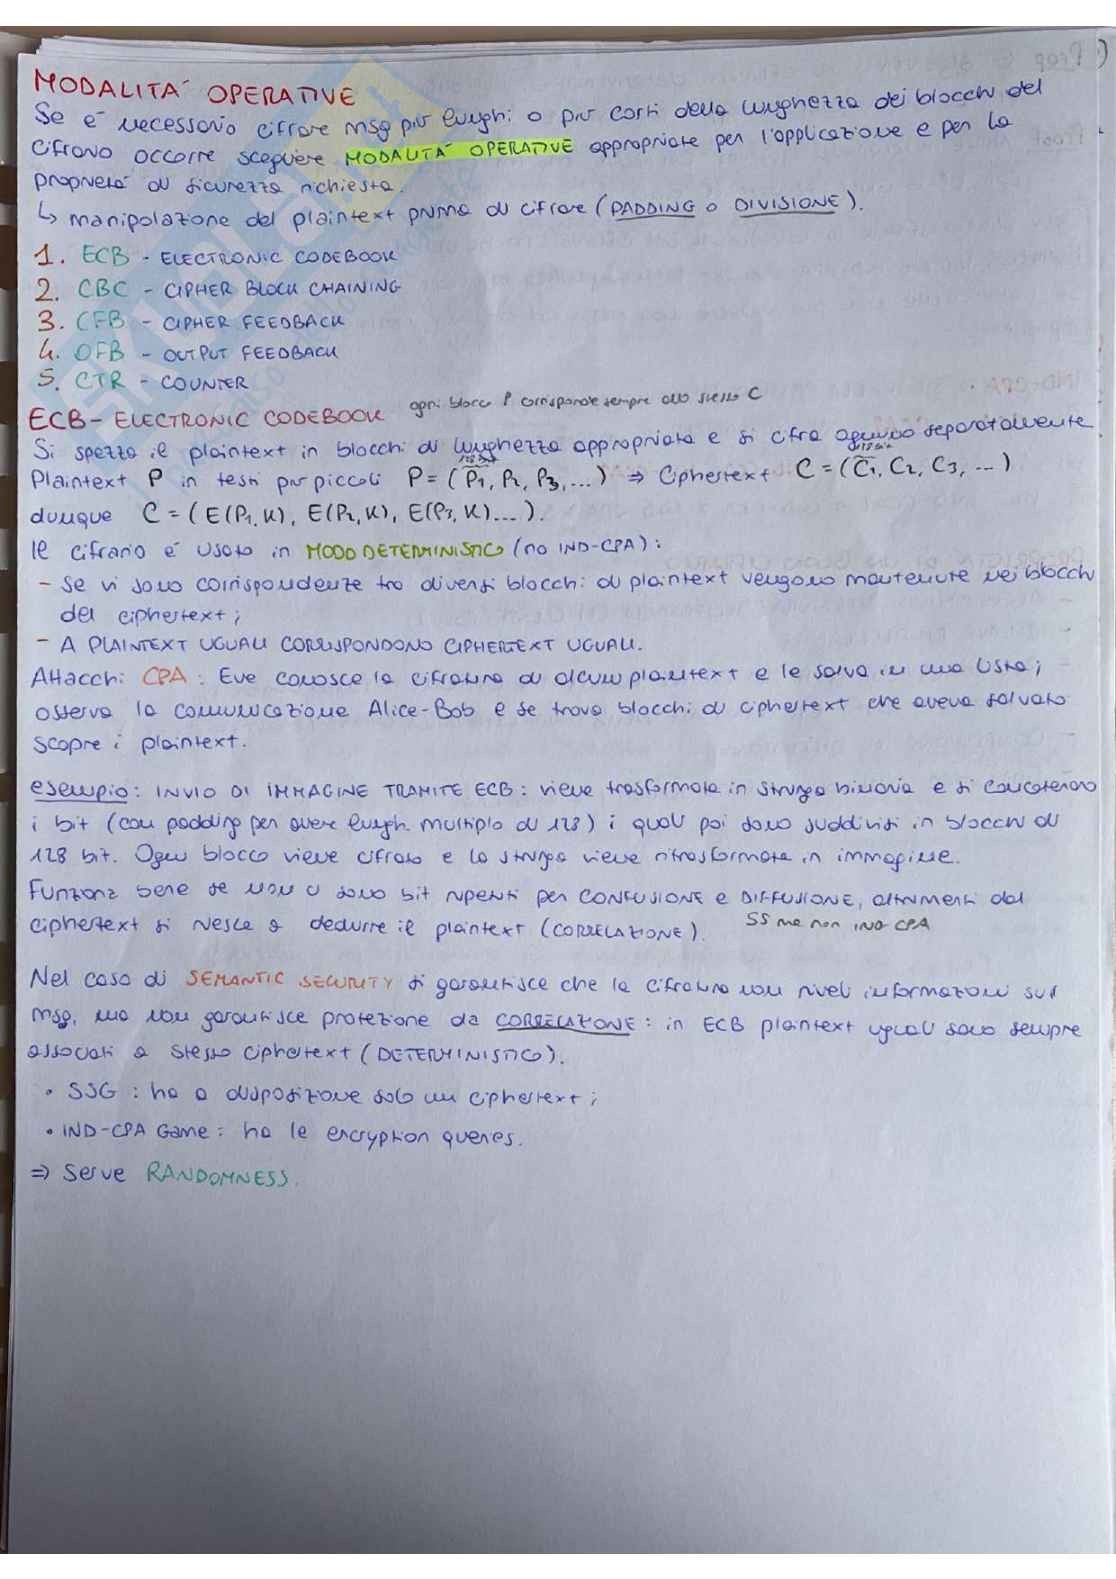 MODALITA' OPERATIVE
Se e' necessario cifrare msg più lunghi o più corti della lunghezza dei blocchi del
cifrario occorre scegliere MODALITA' OPERATIVE appropriate per l'applicazione e per la
proprietà di sicurezza richiesta.
↳ manipolazione del plaintext prima di cifrare (PADDING o DIVISIONE).
1. ECB - ELECTRONIC CODEBOOK
2. CBC - CIPHER BLOCK CHAINING
3. CFB - CIPHER FEEDBACK
4. OFB - OUTPUT FEEDBACK
5. CTR - COUNTER
ECB - ELECTRONIC CODEBOOK ogni blocco P corrisponde sempre allo stesso C
Si spezza il plaintext in blocchi di lunghezza appropriata e si cifra ognuno separatamente
128 bit 128 bit
Plaintext P in testi più piccoli P = (P1, P2, P3, ...) ⇒ Ciphertext C = (C1, C2, C3, ...)
dunque C = (E(P1, K), E(P2, K), E(P3, K)...).
Il cifrario e' usato in MODO DETERMINISTICO (no IND-CPA):
- Se vi sono corrispondenze tra diversi blocchi di plaintext vengono mantenute nei blocchi
del ciphertext;
- A PLAINTEXT UGUALI CORRISPONDONO CIPHERTEXT UGUALI.
Attacchi CPA: Eve conosce la cifratura di alcuni plaintext e le salva in una lista;
osserva la comunicazione Alice-Bob e se trova blocchi di ciphertext che aveva salvato
scopre i plaintext.
esempio: INVIO DI IMMAGINE TRAMITE ECB: viene trasformata in stringa binaria e si concatenano
i bit (con padding per avere lungh. multiplo di 128) i quali poi sono suddivisi in blocchi di
128 bit. Ogni blocco viene cifrato e la stringa viene ritrasformata in immagine.
Funziona bene se non ci sono bit ripetuti per CONFUSIONE e DIFFUSIONE, altrimenti dal
ciphertext si riesce a dedurre il plaintext (CORRELAZIONE). SS ma non IND-CPA
Nel caso di SEMANTIC SECURITY si garantisce che la cifratura non riveli informazioni sul
msg, ma non garantisce protezione da CORRELAZIONE: in ECB plaintext uguali sono sempre
associati a stesso ciphertext (DETERMINISTICO).
• SSG: ha a disposizione solo un ciphertext;
• IND-CPA Game: ha le encryption queries.
⇒ Serve RANDOMNESS.